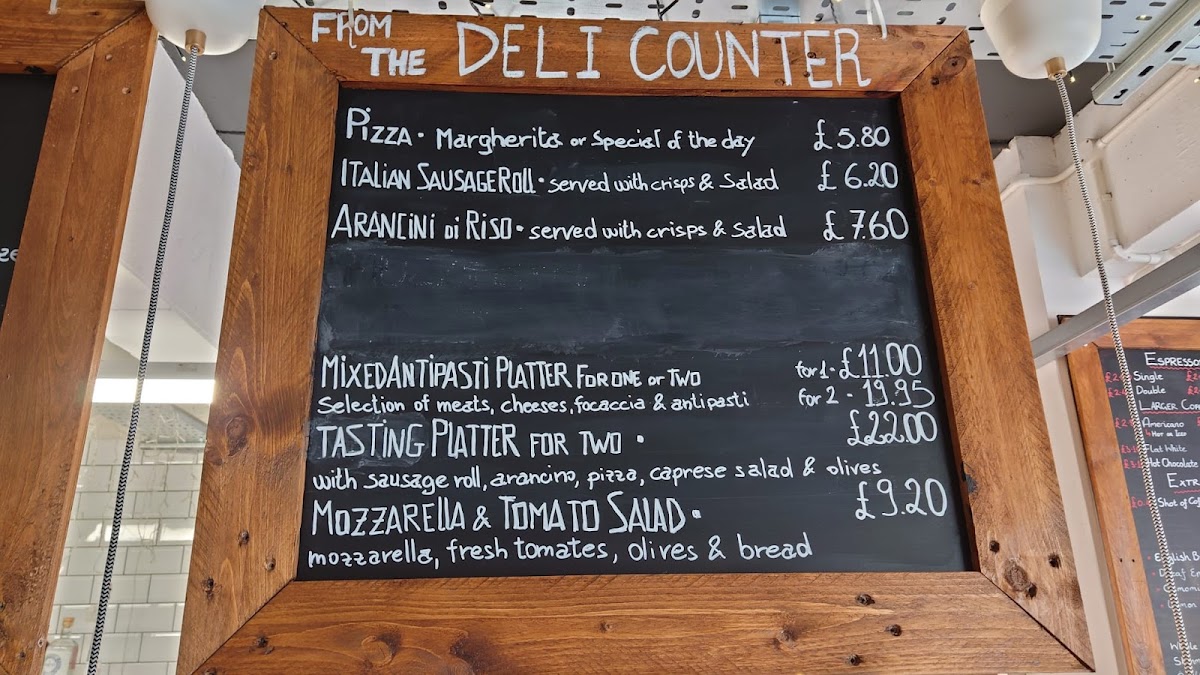 FROM THE DELI COUNTER
PIZZA • Margherita or Special of the day £5.80
ITALIAN SAUSAGE ROLL • served with crisps & Salad £6.20
ARANCINI Di RISO • served with crisps & Salad £7.60
MIXED ANTIPASTI PLATTER FOR ONE or TWO for 1 - £11.00
Selection of meats, cheeses, focaccia & antipasti for 2 - 19.95
TASTING PLATTER FOR TWO • £22.00
with sausage roll, arancino, pizza, caprese salad & olives
MOZZARELLA & TOMATO SALAD • £9.20
mozzarella, fresh tomatoes, olives & bread
ESPRESSO
Single
Double
LARGER
Americano
Hot or Iced
Flat White
Hot Chocolate
EXTR
Shot of
English